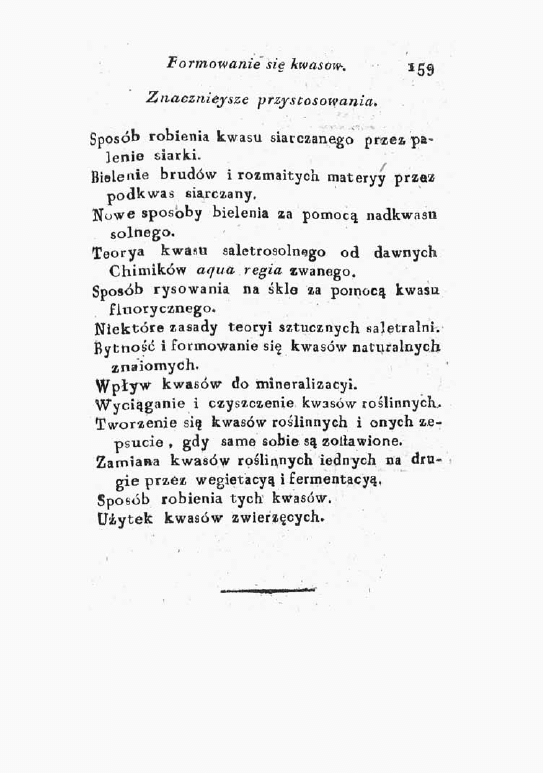 Formowanie się kwasow. 159
Znacznieysze przystosowania.
Sposób robienia kwasu siarczanego przez pa-
lenie siarki.
Bielenie brudów i rozmaitych materyy przez
podkwas siarczany.
Nowe sposoby bielenia za pomocą nadkwasu
solnego.
Teorya kwasu saletrosolnego od dawnych
Chimików aqua regia zwanego.
Sposób rysowania na śkle za pomocą kwasu
fluorycznego.
Niektóre zasady teoryi sztucznych saletralni.
Bytność i formowanie się kwasów naturalnych
znaiomych.
Wpływ kwasów do mineralizacyi.
Wyciąganie i czyszczenie kwasów roślinnych.
Tworzenie się kwasów roślinnych i onych ze-
psucie, gdy same sobie są zostawione.
Zamiana kwasów roślinnych iednych na dru-
gie przez wegietacyą i fermentacyą.
Sposób robienia tych kwasów.
Użytek kwasów zwierzęcych.